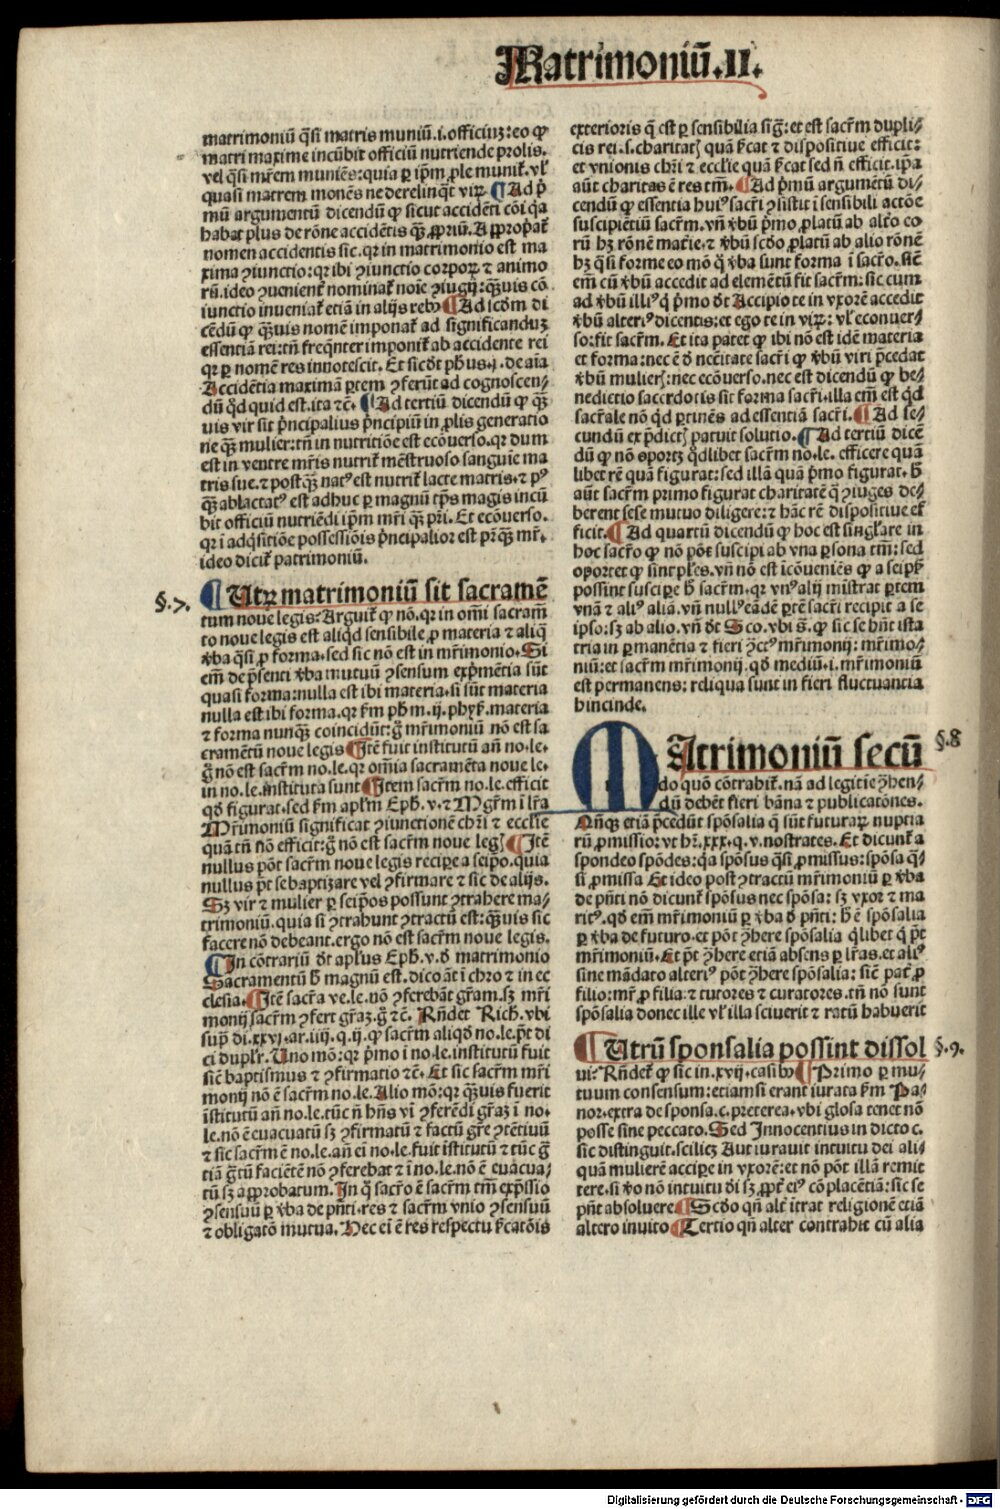 Matrimoniū.II.
matrimoniū q̄si matris muniū.i.officiuꝫ:eo ꝙ
matri maxime incūbit officiū nutriende prolis.
vel q̄si mr̄em muniēs:quia ꝑ ip̄m ꝓle munit̄.vl̓
quasi matrem monēs ne derelinq̄t viꝝ. ¶Ad p̄
mū argumentū dicendū ꝙ sicut accidēti cōi q̄a
habat plus de rōne accidētis qꝫ̄ ꝓpriū. Appropat̄
nomen accidentis sic.qr in matrimonio est ma
xima ꝯiunctio:qr ibi ꝯiunctio corpoꝝ ⁊ animo
rū.ideo ꝯuenient̄ nominat̄ noīe ꝯiugij:qꝫ̄uis cō
iunctio inueniat̄ etiā in alijs rebꝰ ¶Ad scd̄m di
cēdū ꝙ qꝫ̄uis nomē imponat̄ ad significanduꝫ
essentiā rei:tn̄ freq̄nter imponit̄ ab accidente rei
qr ꝑ nomē res innotescit. Et sic dt̄ ph̓us.j.de aīa
Accidētia maximā ꝑtem ꝯferūt ad cognoscen⸗
dū qd̓ quid est.ita ⁊c̄. ¶Ad tertiū dicendū ꝙ qꝫ̄
uis vir sit p̄ncipalius p̄ncipiū in ꝓlis generatio
ne qꝫ̄ mulier:tn̄ in nutritiōe est ecōuerso.qr dum
est in ventre mr̄is nutrit̄ mēstruoso sanguīe ma
tris sue.⁊ postqꝫ̄ natꝰ est nutrit̄ lacte matris.⁊ pꝰ
qꝫ̄ ablactatꝰ est adhuc ꝑ magnū tp̄s magis incū
bit officiū nutriēdi ip̄m mr̄i qꝫ̄ pr̄i. Et ecōuerso.
qr ī adq̄sitiōe possessiōis p̄ncipalior est pr̄ qꝫ̄ mr̄.
ideo dicit̄ patrimoniū.
§.7.
¶Utꝝ matrimoniū sit sacramē
tum noue legis? Arguit̄ ꝙ nō.qr in om̄i sacram̄
to noue legis est aliqd̓ sensibile ꝓ materia ⁊ aliq̄
v̓ba q̄si ꝓ forma.sed sic nō est in mr̄imonio. Si
em̄ de p̄senti v̓ba mutuū ꝯsensum exp̄mētia sūt
quasi forma:nulla est ibi materia.si sūt materia
nulla est ibi forma.qr ẜm ph̓m.ij.phyẜ.materia
⁊ forma nunqꝫ̄ coincidūt:g̊ mr̄imoniū nō est sa
cramētū noue legis ¶Itē fuit institutū an̄ no.le.
g̊ nō est sacr̄m no.le.qr om̄ia sacramēta noue le⸗
in no.le.instituta sunt ¶Item sacr̄m no.le.efficit
qd̓ figurat.sed ẜm apl̓m Eph̓.v.⁊ Mgr̄m ī lr̄a
Mr̄imoniū significat ꝯiunctionē chr̄i ⁊ eccl̓ie
quā tn̄ nō efficit:g̊ nō est sacr̄m noue legꝭ ¶Itē
nullus pōt sacr̄m noue legis recipe a seip̄o.quia
nullus p̄t se baptizare vel ꝯfirmare ⁊ sic de alijs.
Sꝫ vir ⁊ mulier ꝑ seip̄os possunt ꝯtrahere ma⸗
trimoniū.quia si ꝯtrahunt ꝯtractū est:qꝫ̄uis sic
facere nō debeant.ergo nō est sacr̄m noue legis.
¶In cōtrariū dt̄ apl̓us Eph̓.v.d̓ matrimonio
Sacramentū h̓ magnū est.dico āt ī chr̄o ⁊ in ec
clesia. ¶Itē sacr̄a ve.le.nō ꝯferebāt gr̄am.sꝫ mr̄i
monij sacr̄m ꝯfert gr̄aꝫ.g̊ ⁊c̄. Rn̄det Rich̓.vbi
sup̄ di.xxvj.ar.iiij.q.ij.ꝙ sacr̄m aliqd̓ no.le.p̄t di
ci dupl̓r. Uno mō:qr p̄mo ī no.le.institutū fuit
sic̄ baptismus ⁊ ꝯfirmatio ⁊c̄. Et sic sacr̄m mr̄i
monij nō ē sacr̄m no.le. Alio mō:qr qꝫ̄uis fuerit
īstitutū an̄ no.le.tūc n̄ hn̄s vī ꝯferēdi gr̄aꝫ ī no.
le.nō ē euacuatū sꝫ ꝯfirmatū ⁊ factū gr̄e ꝯtētiuū
⁊ sic sacr̄m ē no.le.an̄ eī no.le.fuit īstitutū ⁊ tūc g̊
tiā g̊tū faciētē nō ꝯferebat ⁊ ī no.le.nō ē euacua⸗
tū sꝫ approbatum. In q̊ sacr̄o ē sacr̄m tm̄ exp̄ssio
ꝯsensuū ꝑ v̓ba de p̄nti.res ⁊ sacr̄m vnio ꝯsensuū
⁊ obligatō mutua. Hec eī ē res respectu ẜcatōis
exterioris q̄ est ꝑ sensibilia sig̊:et est sacr̄m dupli⸗
cis rei.s.charitatꝭ quā ẜcat ⁊ dispositiue efficit:
et vnionis chr̄i ⁊ eccl̓ie quā ẜcat sed n̄ efficit.ip̄a
aūt charitas ē res tm̄. ¶Ad p̄mū argumētū di⸗
cendū ꝙ essentia huiꝰ sacr̄i ꝯsistit ī sensibili actōe
suscipiētiū sacr̄m.vn̄ v̓bū p̄mo ꝓlatū ab alt̓o eo
rū hꝫ rōnē mat̓ie.⁊ v̓bū scd̓o ꝓlatū ab alio rōnē
hꝫ q̄si forme eo mō q̊ v̓ba sunt forma ī sacr̄o.sic̄
em̄ cū v̓bū accedit ad elementū fit sacr̄m:sic cum
ad v̓bū illiꝰ q̊ p̄mo dt̄ Accipio te in vxorē accedit
v̓bū alteriꝰ dicentis:et ego te in viꝝ:vl̓ econuer⸗
so:fit sacr̄m. Et ita patet ꝙ ibi nō est idē materia
et forma:nec ē d̓ ncc̄itate sacr̄i ꝙ v̓bū viri p̄cedat
v̓bū mulierꝭ:nec ecōuerso.nec est dicendū ꝙ be⸗
nedictio sacerdotis sit forma sacr̄i.illa em̄ est qd̓
sacr̄ale nō qd̓ ꝑtinēs ad essentiā sacr̄i. ¶Ad se⸗
cundū ex p̄dictꝭ patuit solutio. ¶Ad tertiū dicē
dū ꝙ nō oportꝫ qd̓libet sacr̄m no.le.efficere quā
libet rē quā figurat:sed illā quā p̄mo figurat.h̓
aūt sacr̄m primo figurat charitatē q̄ ꝯiuges de⸗
berent sese mutuo diligere:⁊ hāc rē dispositiue ef
ficit. ¶Ad quartū dicendū ꝙ hoc est singl̓are in
hoc sacr̄o ꝙ nō pōt suscipi ab vna ꝑsona tm̄:sed
oportet ꝙ sint pl̓es.vn̄ nō est īcōueniēs ꝙ a seipẜ
possint suscipe h̓ sacr̄m.qr vnꝰ alij mīstrat ꝑtem
vnā ⁊ aliꝰ aliā.vn̄ nullꝰ eādē ꝑtē sacr̄i recipit a se
ipso:sꝫ ab alio.vn̄ dt̄ Sco.vbi s̄.ꝙ sic se hn̄t ista
tria in ꝑmanētia ⁊ fieri ꝯ̄ctꝰ mr̄imonij:mr̄imo⸗
niū:et sacr̄m mr̄imonij.qd̓ mediū.i.mr̄imoniū
est permanens:reliqua sunt in fieri fluctuantia
hincinde.
§.8
MAtrimoniū secū
do quō cōtrahit̄.nā ad legitīe ꝯ̄hen⸗
dū debēt fieri bāna ⁊ publicatōnes.
Añqꝫ etiā p̄cedūt spōsalia q̄ sūt futuraꝝ nuptia
rū ꝓmissio:vt hr̄.xxx.q.v.nostrates. Et dicunt̄ a
spondeo spōdes:q̄a spōsus q̄si ꝓmissus:spōsa q̄⸗
si ꝓmissa Et ideo post ꝯtractū mr̄imoniū ꝑ v̓ba
de p̄nti nō dicunt̄ spōsus nec spōsa: sꝫ vxor ⁊ ma
ritꝰ.qd̓ em̄ mr̄imoniū ꝑ v̓ba d̓ p̄nti: h̓ ē spōsalia
ꝑ v̓ba de futuro.et pōt ꝯ̄here spōsalia q̊libet q̊ p̄t
mr̄imoniū. Et p̄t ꝯ̄here etiā absens ꝑ lr̄as.et aliꝰ
sine mādato alteriꝰ pōt ꝯ̄here spōsalia: sic̄ pat̄ ꝓ
filio:mr̄ ꝓ filia:⁊ tutores ⁊ curatores.tn̄ nō sunt
spōsalia donec ille vl̓ illa sciuerit ⁊ ratū habuerit
§.9.
¶Utrū sponsalia possint dissol
ui? Rn̄det̄ ꝙ sic in.xvij.casibꝰ ¶Primo ꝑ mu⸗
tuum consensum:etiamsi erant iurata ẜm Pa⸗
nor.extra de sponsa.c.preterea.vbi glosa tenet nō
posse sine peccato. Sed Innocentius in dicto c.
sic distinguit.scilicꝫ Aut iurauit intuitu dei ali⸗
quā mulierē accipe in vxorē:et nō pōt illā remit
tere.si v̓o nō intuitu di sꝫ ꝓpt̓ eiꝰ cōplacētiā:sic se
pn̄t absoluere. ¶Scd̓o qn̄ alt̓ ītrat religionē etiā
altero inuito ¶Tertio qn̄ alter contrahit cū alia
Digitalisierung gefördert durch die Deutsche Forschungsgemeinschaft - DFG